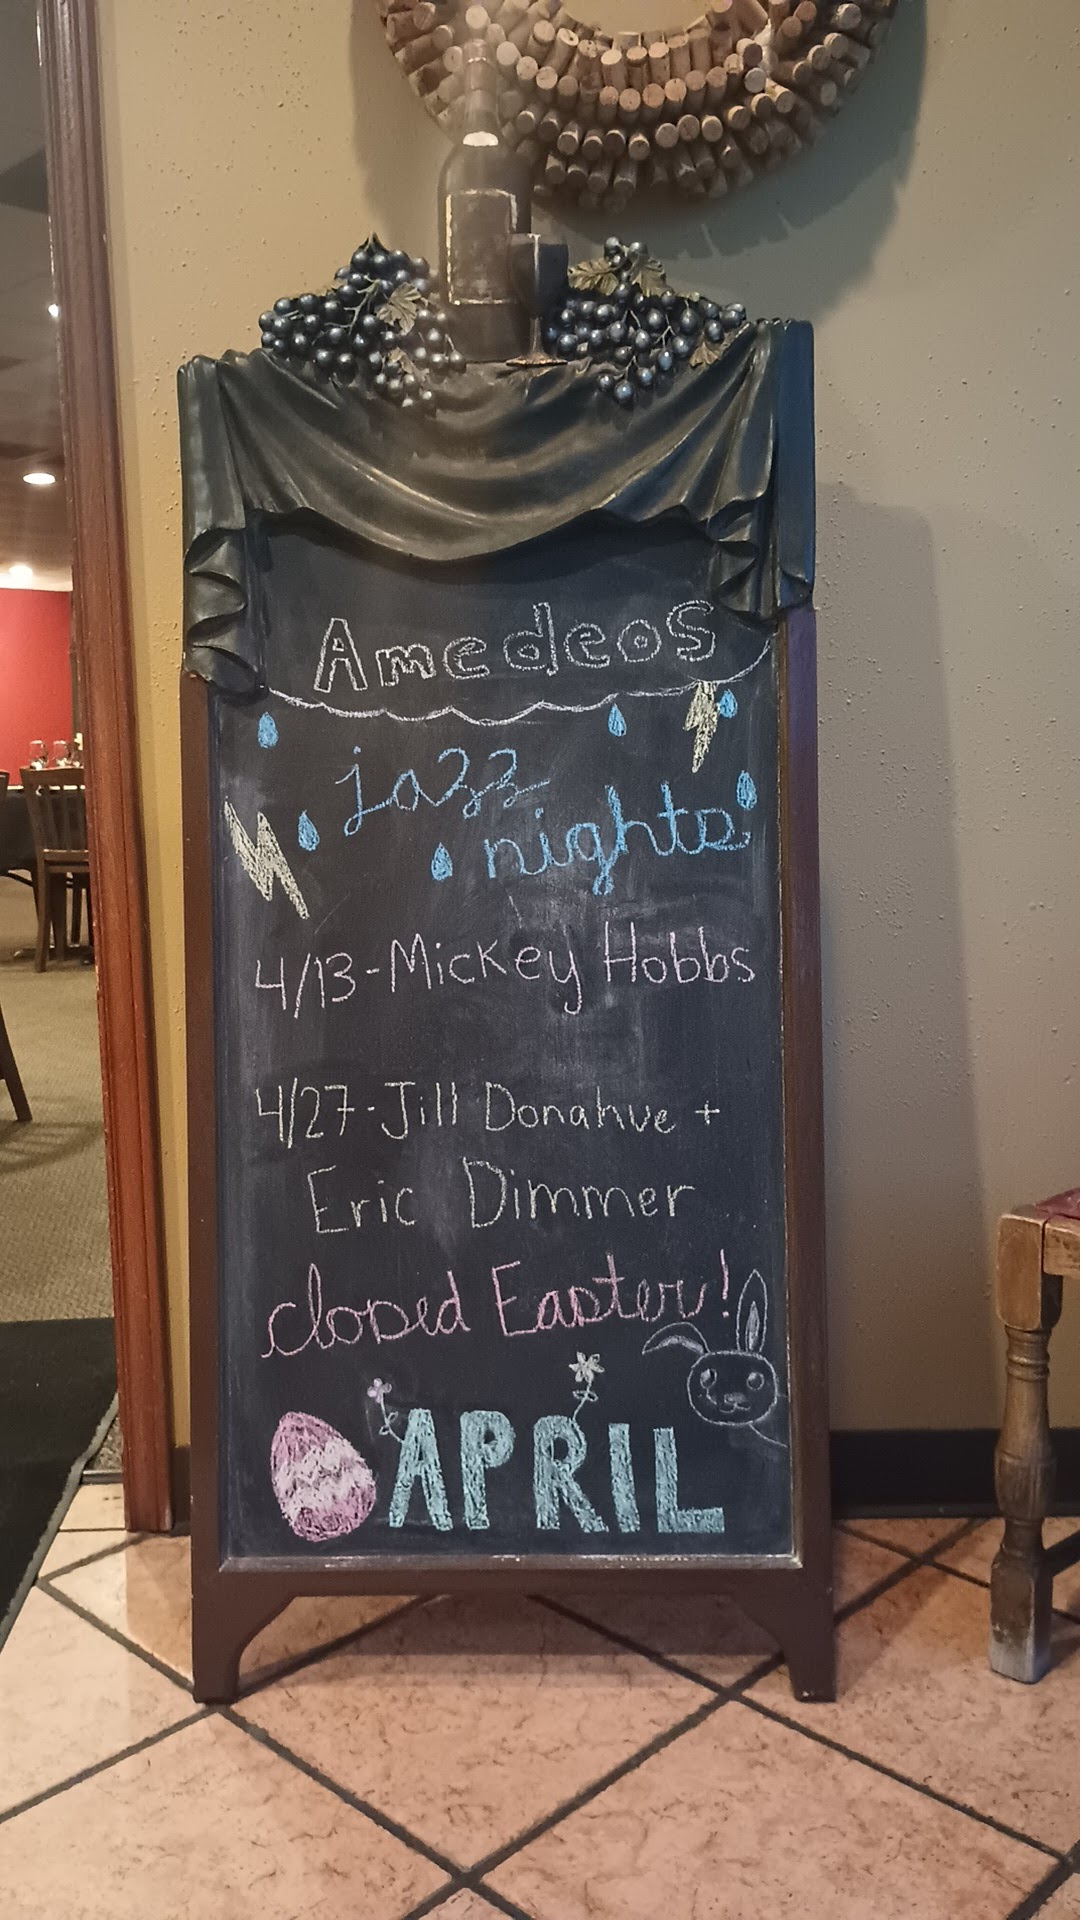 Amedeos
jazz
nights
4/13-Mickey Hobbs
4/27-Jill Donahue +
Eric Dimmer
closed Easter!
APRIL